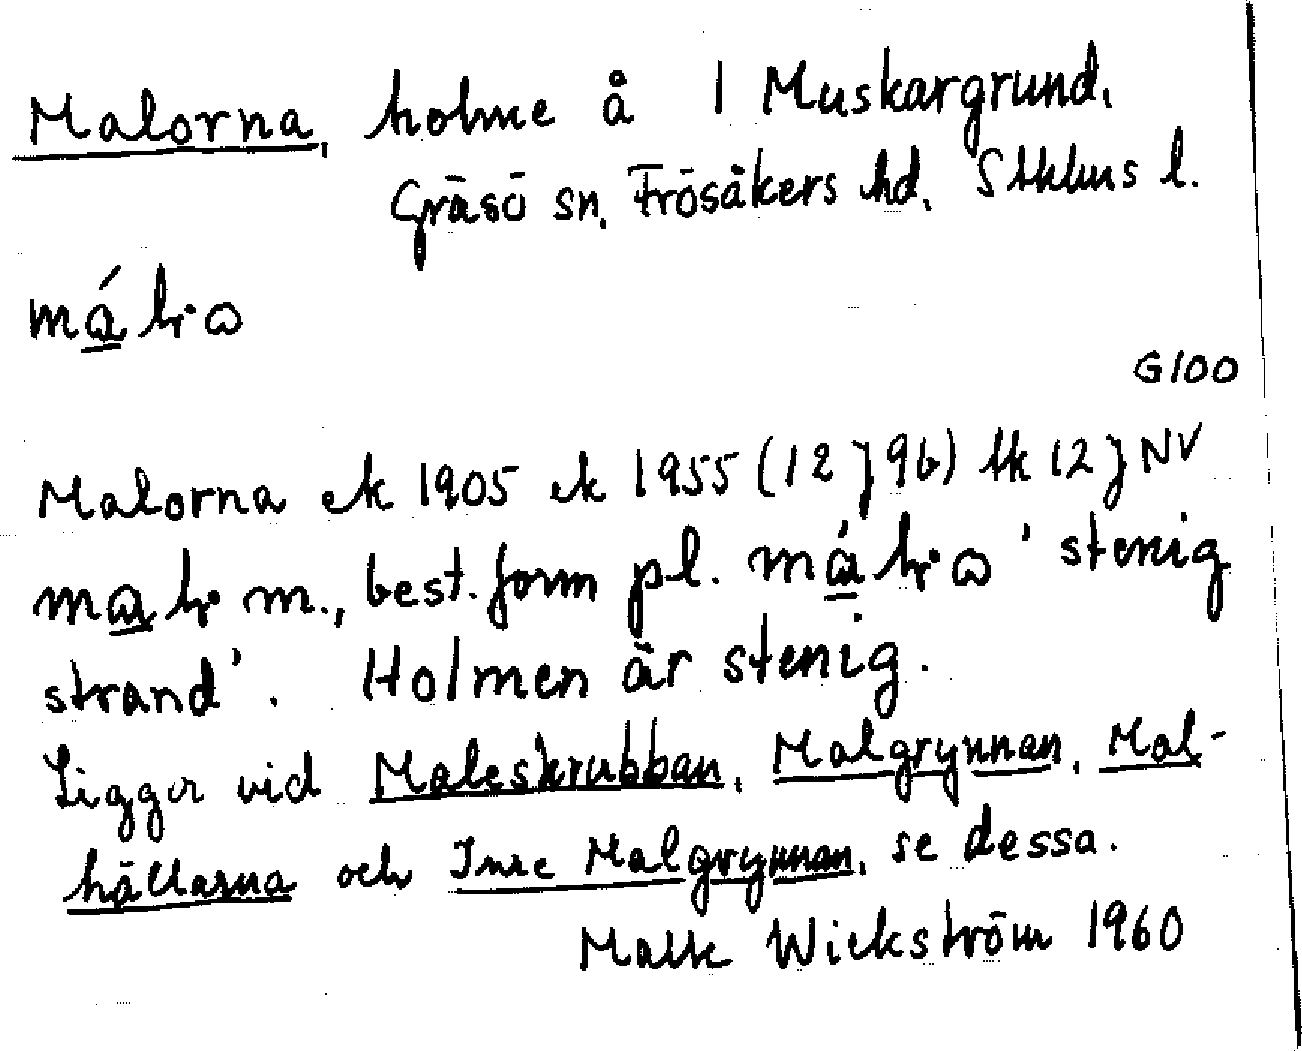 Malorna, holme å 1 Muskargrund,
Gräsö sn, Frösåkers hd, Sthlms l.
G100
Malorna ek 1905 ek 1955 (12 J 9b) tk 12 J NV
m., best. form pl. ' stenig
strand'. Holmen är stenig.
Ligger vid Maleskrubban, Malgrynnan, Mal-
hällarna och Inre Malgrynnan, se dessa.
Matte Wickström 1960